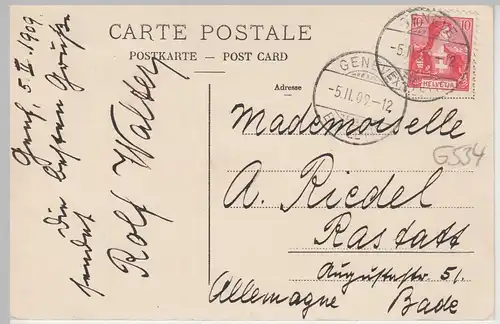 CARTE POSTALE
POSTKARTE – POST CARD
Adresse
Genf, 5.II.1909.
Die besten Grüße
sendet
Rolf Walder
GENÈVE
-5.II.09.-12
10 10
HELVETIA
G534
Mademoiselle
A. Riedel
Rastatt
Augustastr 51.
Allemagne Bade